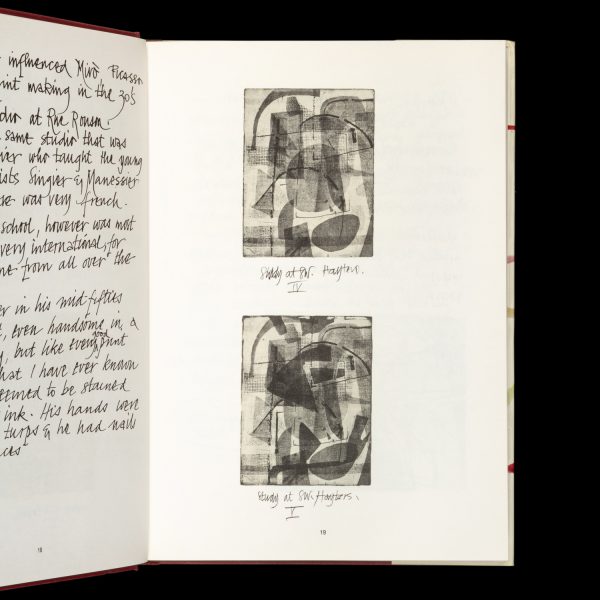 influenced Miró Picasso
int making in the 30's
dio at Rue Ronsin
same studio that was
ier who taught the young
ists Singier & Manessier
se was very french.
school, however was most
very international, for
me from all over the
er in his mid-fifties
, even handsome in a
, but like every good print
hat I have ever known
eemed to be stained
ink. His hands were
turps & he had nails
ces
18
Study at SW. Hayters.
IV
Study at SW. Hayters.
V
19